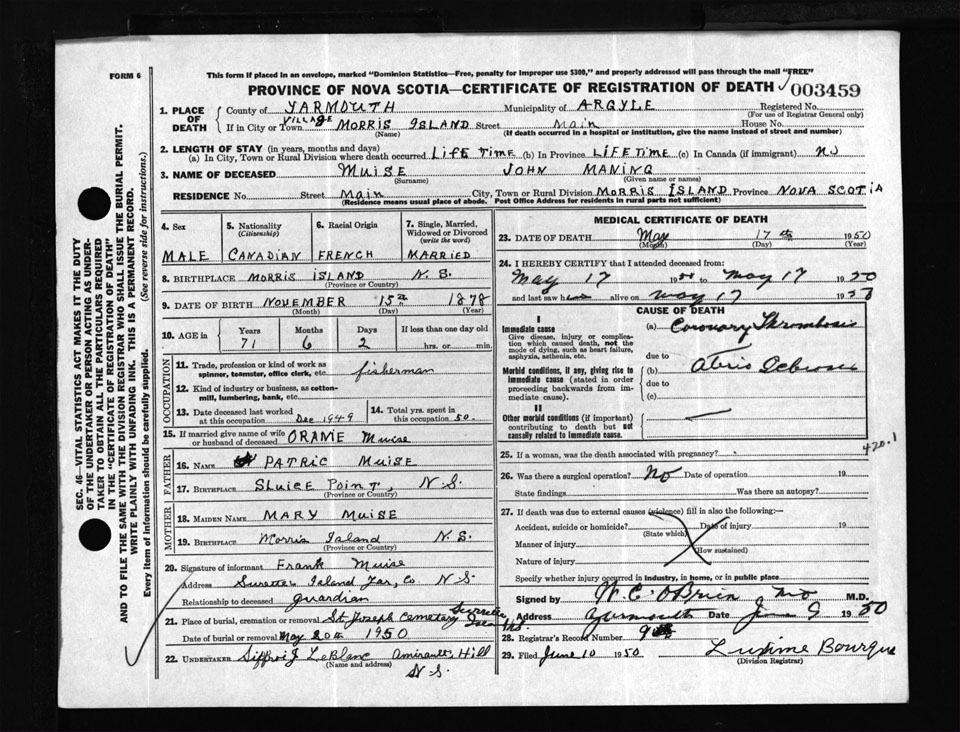 FORM 6
This form if placed in an envelope, marked "Dominion Statistics—Free, penalty for improper use $300," and properly addressed will pass through the mail "FREE"
PROVINCE OF NOVA SCOTIA—CERTIFICATE OF REGISTRATION OF DEATH 003459
1. PLACE OF DEATH
County of YARMOUTH Municipality of ARGYLE Registered No.
(For use of Registrar General only)
If in City or Town VILLAGE MORRIS ISLAND Street Main House No.
(Name) (If death occurred in a hospital or institution, give the name instead of street and number)
2. LENGTH OF STAY (in years, months and days)
(a) In City, Town or Rural Division where death occurred LIFE TIME (b) In Province LIFETIME (c) In Canada (if immigrant) NO
3. NAME OF DECEASED MUISE JOHN MANING
(Surname) (Given name or names)
RESIDENCE No. Street Main City, Town or Rural Division MORRIS ISLAND Province NOVA SCOTIA
(Residence means usual place of abode. Post Office Address for residents in rural parts not sufficient)
4. Sex
MALE
5. Nationality
(Citizenship)
CANADIAN
6. Racial Origin
FRENCH
7. Single, Married, Widowed or Divorced
(write the word)
MARRIED
8. BIRTHPLACE MORRIS ISLAND N.S.
(Province or Country)
9. DATE OF BIRTH NOVEMBER 15th 1878
(Month) (Day) (Year)
10. AGE in
Years Months Days If less than one day old
71 6 2 hrs. or min.
OCCUPATION
11. Trade, profession or kind of work as
spinner, teamster, office clerk, etc. fisherman
12. Kind of industry or business, as cotton-
mill, lumbering, bank, etc.
13. Date deceased last worked
at this occupation Dec 1949
14. Total yrs. spent in
this occupation 50.
15. If married give name of wife
or husband of deceased ORANIE Muise
FATHER
16. NAME PATRIC MUISE
17. BIRTHPLACE SLUICE POINT, N.S.
(Province or Country)
MOTHER
18. MAIDEN NAME MARY MUISE
19. BIRTHPLACE Morris Island N.S.
(Province or Country)
20. Signature of informant Frank Muise
Address Surettes Island Yar, Co. N.S.
Relationship to deceased guardian
21. Place of burial, cremation or removal St. Joseph Cemetary Surettes Island N.S.
Date of burial or removal May 20th 1950
22. UNDERTAKER LeBlanc Amiraults Hill
(Name and address)
N.S.
MEDICAL CERTIFICATE OF DEATH
23. DATE OF DEATH May 17th 1950
(Month) (Day) (Year)
24. I HEREBY CERTIFY that I attended deceased from:
May 17 1950 to May 17 1950
and last saw him alive on May 17 1950
CAUSE OF DEATH
I
Immediate cause
Give disease, injury or complica-
tion which caused death, not the
mode of dying, such as heart failure,
asphyxia, asthenia, etc.
(a) Coronary Thrombosis
due to
Morbid conditions, if any, giving rise to
immediate cause (stated in order
proceeding backwards from im-
mediate cause).
(b)
due to
(c)
II
Other morbid conditions (if important)
contributing to death but not
causally related to immediate cause.
420.1
25. If a woman, was the death associated with pregnancy?
26. Was there a surgical operation? No Date of operation 19
State findings Was there an autopsy?
27. If death was due to external causes (violence) fill in also the following:—
Accident, suicide or homicide? Date of injury 19
(State which)
Manner of injury
(How sustained)
Nature of injury
Specify whether injury occurred in industry, in home, or in public place
Signed by W. C. O'Brien MD M.D.
Address Yarmouth Date June 9 1950
28. Registrar's Record Number
29. Filed June 10 1950 Bourque
(Division Registrar)
SEC. 46—VITAL STATISTICS ACT MAKES IT THE DUTY
OF THE UNDERTAKER OR PERSON ACTING AS UNDER-
TAKER TO OBTAIN ALL THE PARTICULARS REQUIRED
IN THE "CERTIFICATE OF REGISTRATION OF DEATH"
AND TO FILE THE SAME WITH THE DIVISION REGISTRAR WHO SHALL ISSUE THE BURIAL PERMIT.
WRITE PLAINLY WITH UNFADING INK. THIS IS A PERMANENT RECORD.
Every item of information should be carefully supplied. (See reverse side for instructions.)